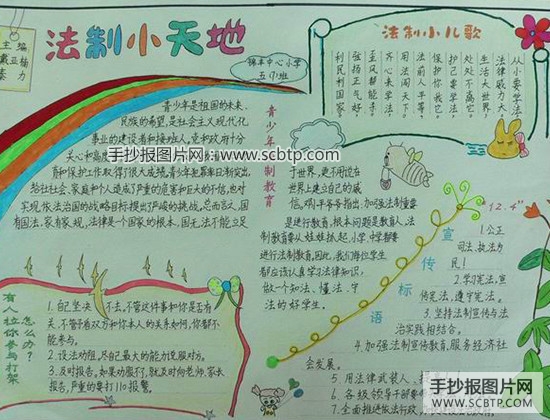 主编
戴亚杨
秦力
法制小天地
锦丰中心小学
五(7)班
法制小儿歌
从小要学法
法律威力大
生活大世界
处处不离它
护己要学法
保护你我它
法前人人平等
用法闯天下
齐心来学法
至风帮能手
弘扬正气好
利民利国家
青少年法制教育
青少年是祖国的未来,
民族的希望,是社会主义现代化
事业的建设者和接班人。党和政府十分
关心和高度
育和保护工作取得了很大成绩,青少年犯罪率日剩突出,
给社会、家庭和个人造成了严重的危害和巨大的不信,也对
实现依法治国的战略目标提出严峻的挑战。总而言之,国
有国法,家有家规,法律是一个国家的根本,国无法不能立足
于世界,是不用说在
世界上建立自己的威
信。邓小平爷爷指出:加强法制重要
是进行教育,根本问题是教育人,法
制教育要从娃娃抓起,小学,中学都要
进行法制教育。因此,我们每位学生
都应该认真学习法律知识,
做一个知法、懂法、守
法的好学生。
手抄报图片网
www.scbtp.com
有人拉你参与打架
怎么办?
1.自己坚决不去。不管这件事和你是否有
关,不管当着双方和你本人的关系如何,你都不
能参与。
2.设法劝阻,尽自己最大的能力说服对方。
3.及时报告。如果劝服不行,就及时向老师,家长
报告,严重的要打110报警。
12.4"
宣传标语
1.公正
司法,执法为
民!
2.学习宪法,宣
传宪法,遵守宪法。
3.坚持法制宣传与法
治实践相结合。
4.加强法制宣传教育,服务经济社
会发展。
5.用法律武装人、
6.各级领导干部要
7.全面推进依法行政,
手抄报图片网
WWW.SCBTP.COM